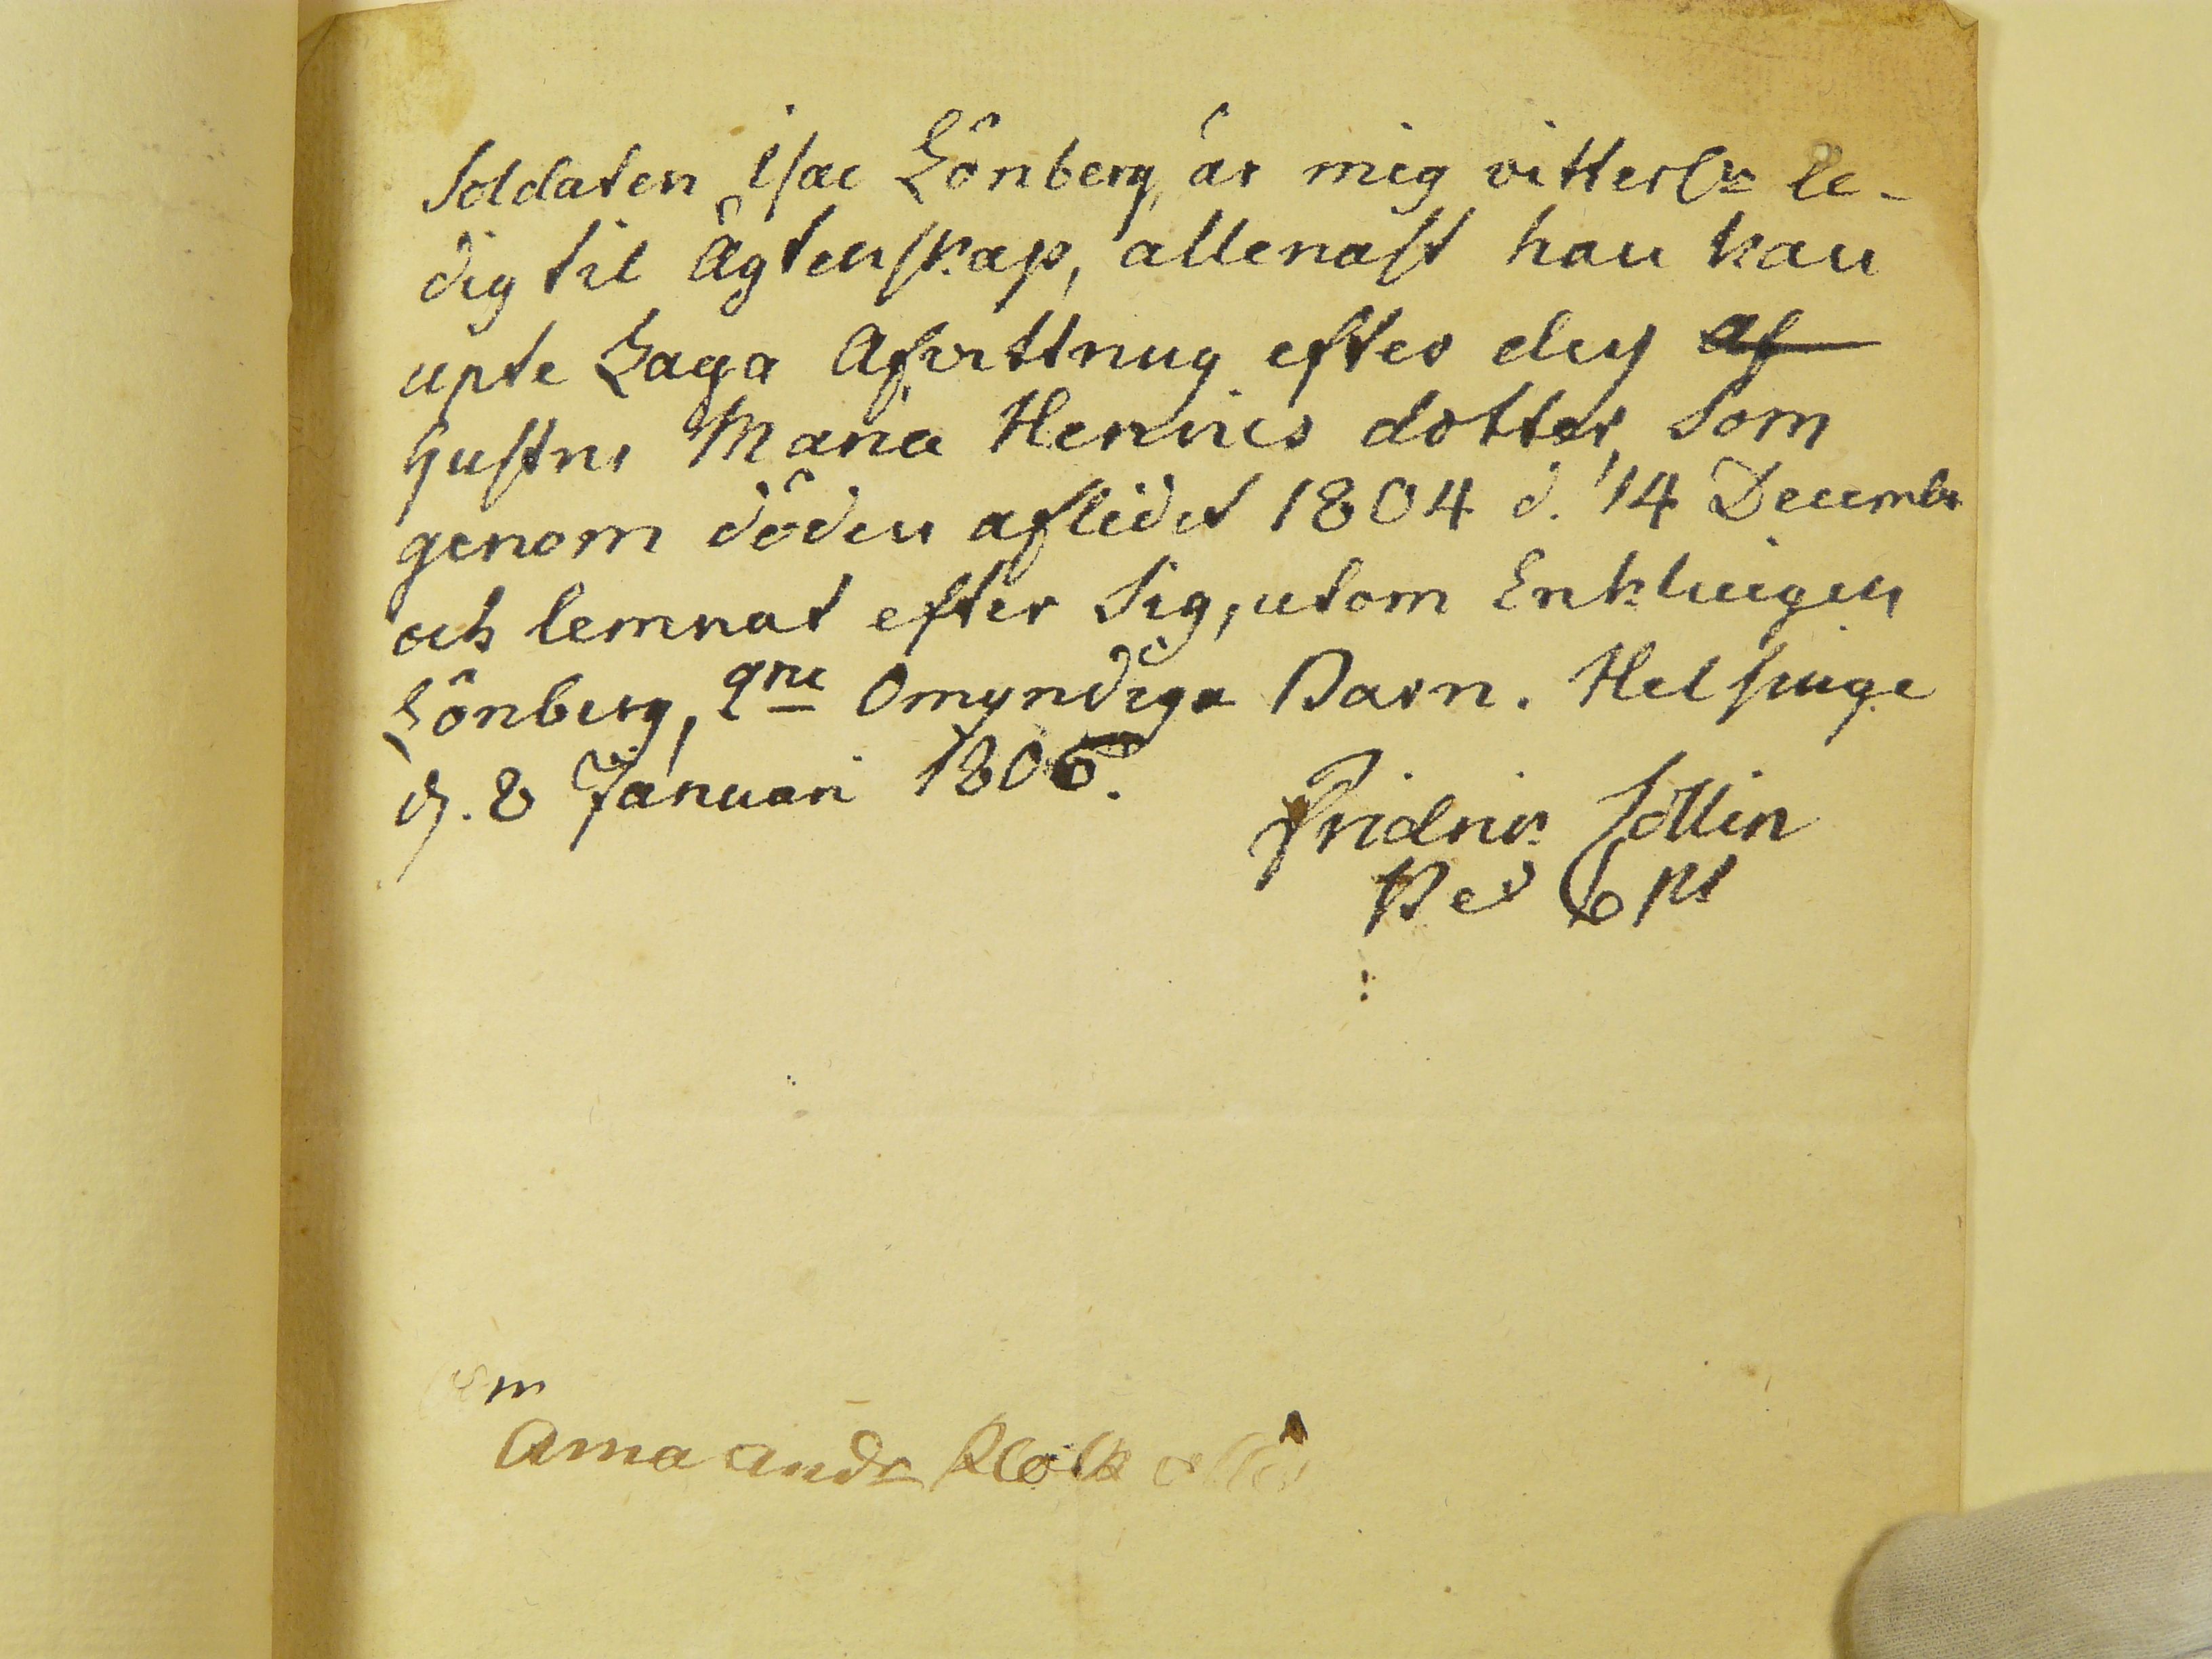 Soldaten Isac Lönberg, är mig vitterl: le-
dig til Ägtenskap, allenast han kan
upte Laga Afvittring efter des af
hustru Maria Henrics dotter, som
genom döden aflidit 1804 d. 14 Decembr
och lemnat efter Sig, utom Enklingen
Lönberg, 2ne Omyndiga Barn. Helsinge
d. 8 Januari 1806.
Fridric Sollin
Reg
Anna Andr